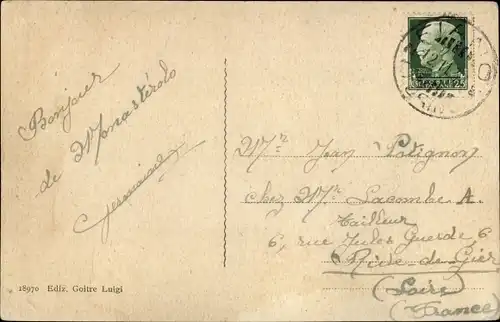 Bonjour
de Monasterolo
Mr Jean Potignon
chez Mr Lacombe A.
tailleur
6, rue Jules Guesde 6
Rive-de-Gier
(Loire)
(France)
18970 Ediz. Goitre Luigi